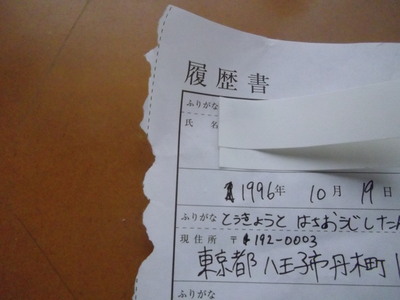 履歴書
ふりがな
氏 名
1996年 10月 19日
ふりがな とうきょうと はちおうじし たん
現住所 〒192-0003
東京都 八王子市 丹木町 1
ふりがな